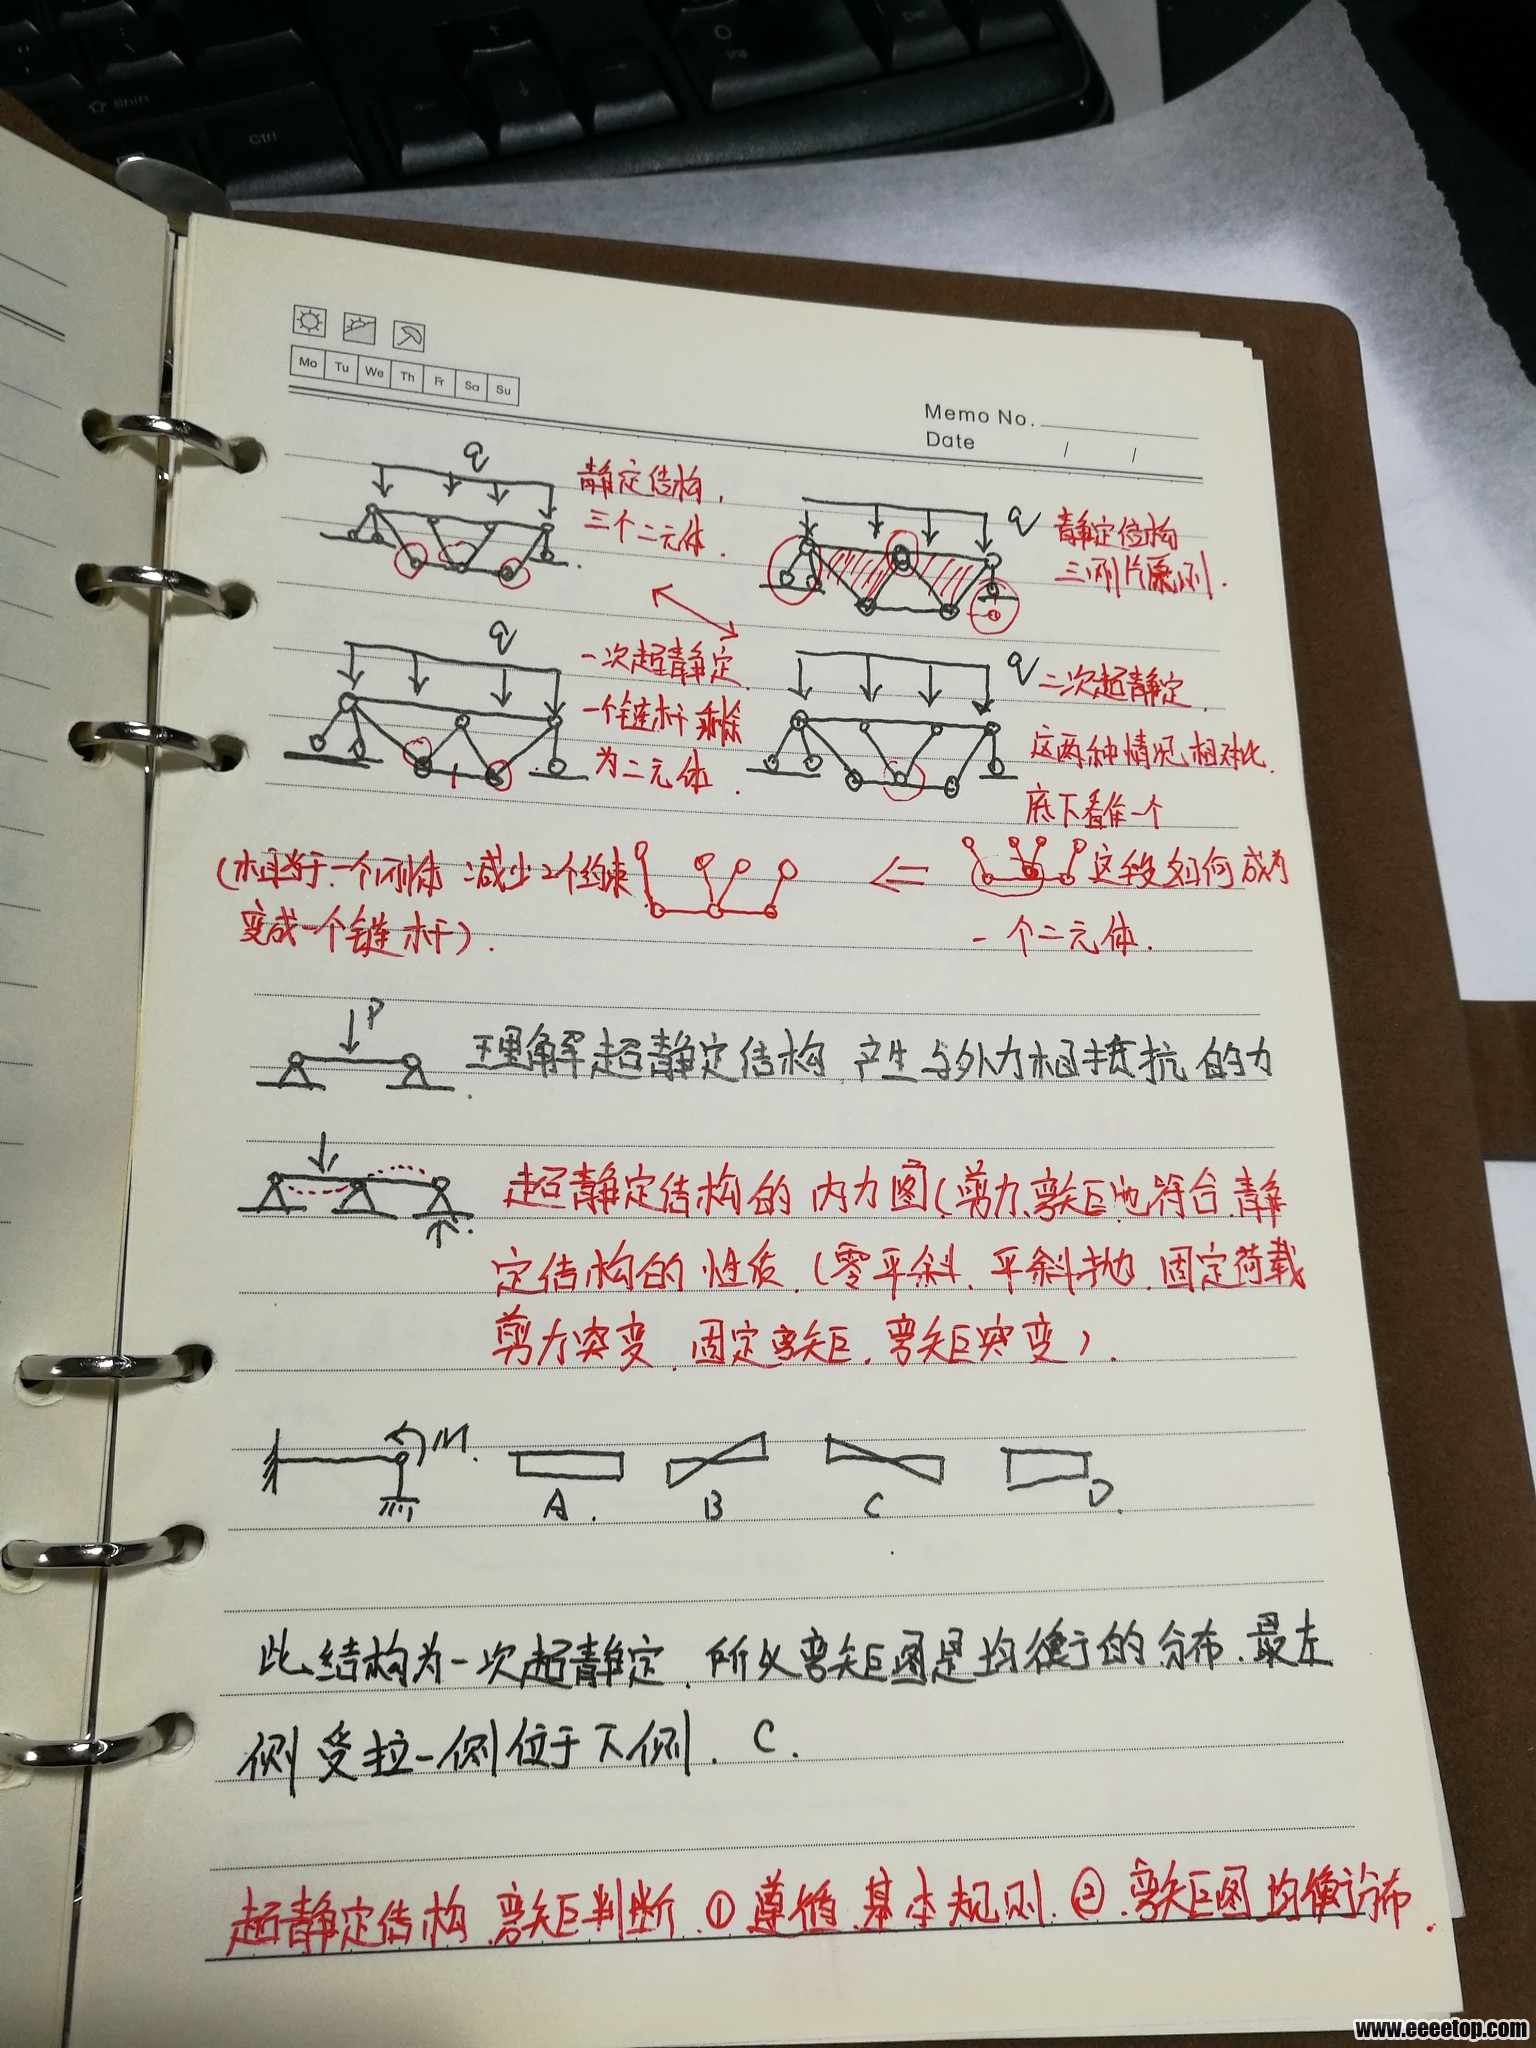 Shift
Ctrl
Ins
Del
Mo Tu We Th Fr Sa Su
Memo No.
Date / /
q
静定结构,
三个二元体.
q
静定结构
三刚片原则.
q
一次超静定
一个链杆剩余
为二元体.
q
二次超静定.
这两种情况相对比.
底下看作一个
(相当于一个刚体 减少2个约束
变成一个链杆).
这种如何成为
一个二元体.
P
理解超静定结构,产生与外力相抵抗的力
超静定结构的内力图(剪力、弯矩)也符合静
定结构的性质.(零平斜、平斜抛.固定荷载
剪力突变.固定弯矩,弯矩突变).
M.
A.
B
C
D.
此结构为一次超静定.所以弯矩图是均衡的分布.最左
侧受拉一侧位于下侧. C.
超静定结构弯矩判断.①遵循基本规则.②.弯矩图均衡分布.
www.eeeetop.com